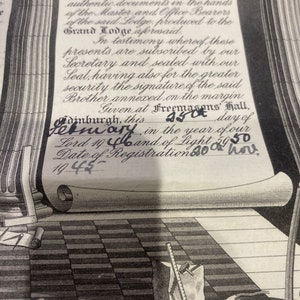 authentic documents in the hands
of the Master and Office Bearers
of the said Lodge, produced to the
Grand Lodge aforesaid.
In testimony whereof, these
presents are subscribed by our
Secretary and sealed with our
Seal, having also for the greater
security the signature of the said
Brother annexed on the margin
Given at Freemasons' Hall,
Edinburgh, this 25th day of
February in the year of our
Lord 1946 and of Light 5950
Date of Registration 30th Nov.
1945